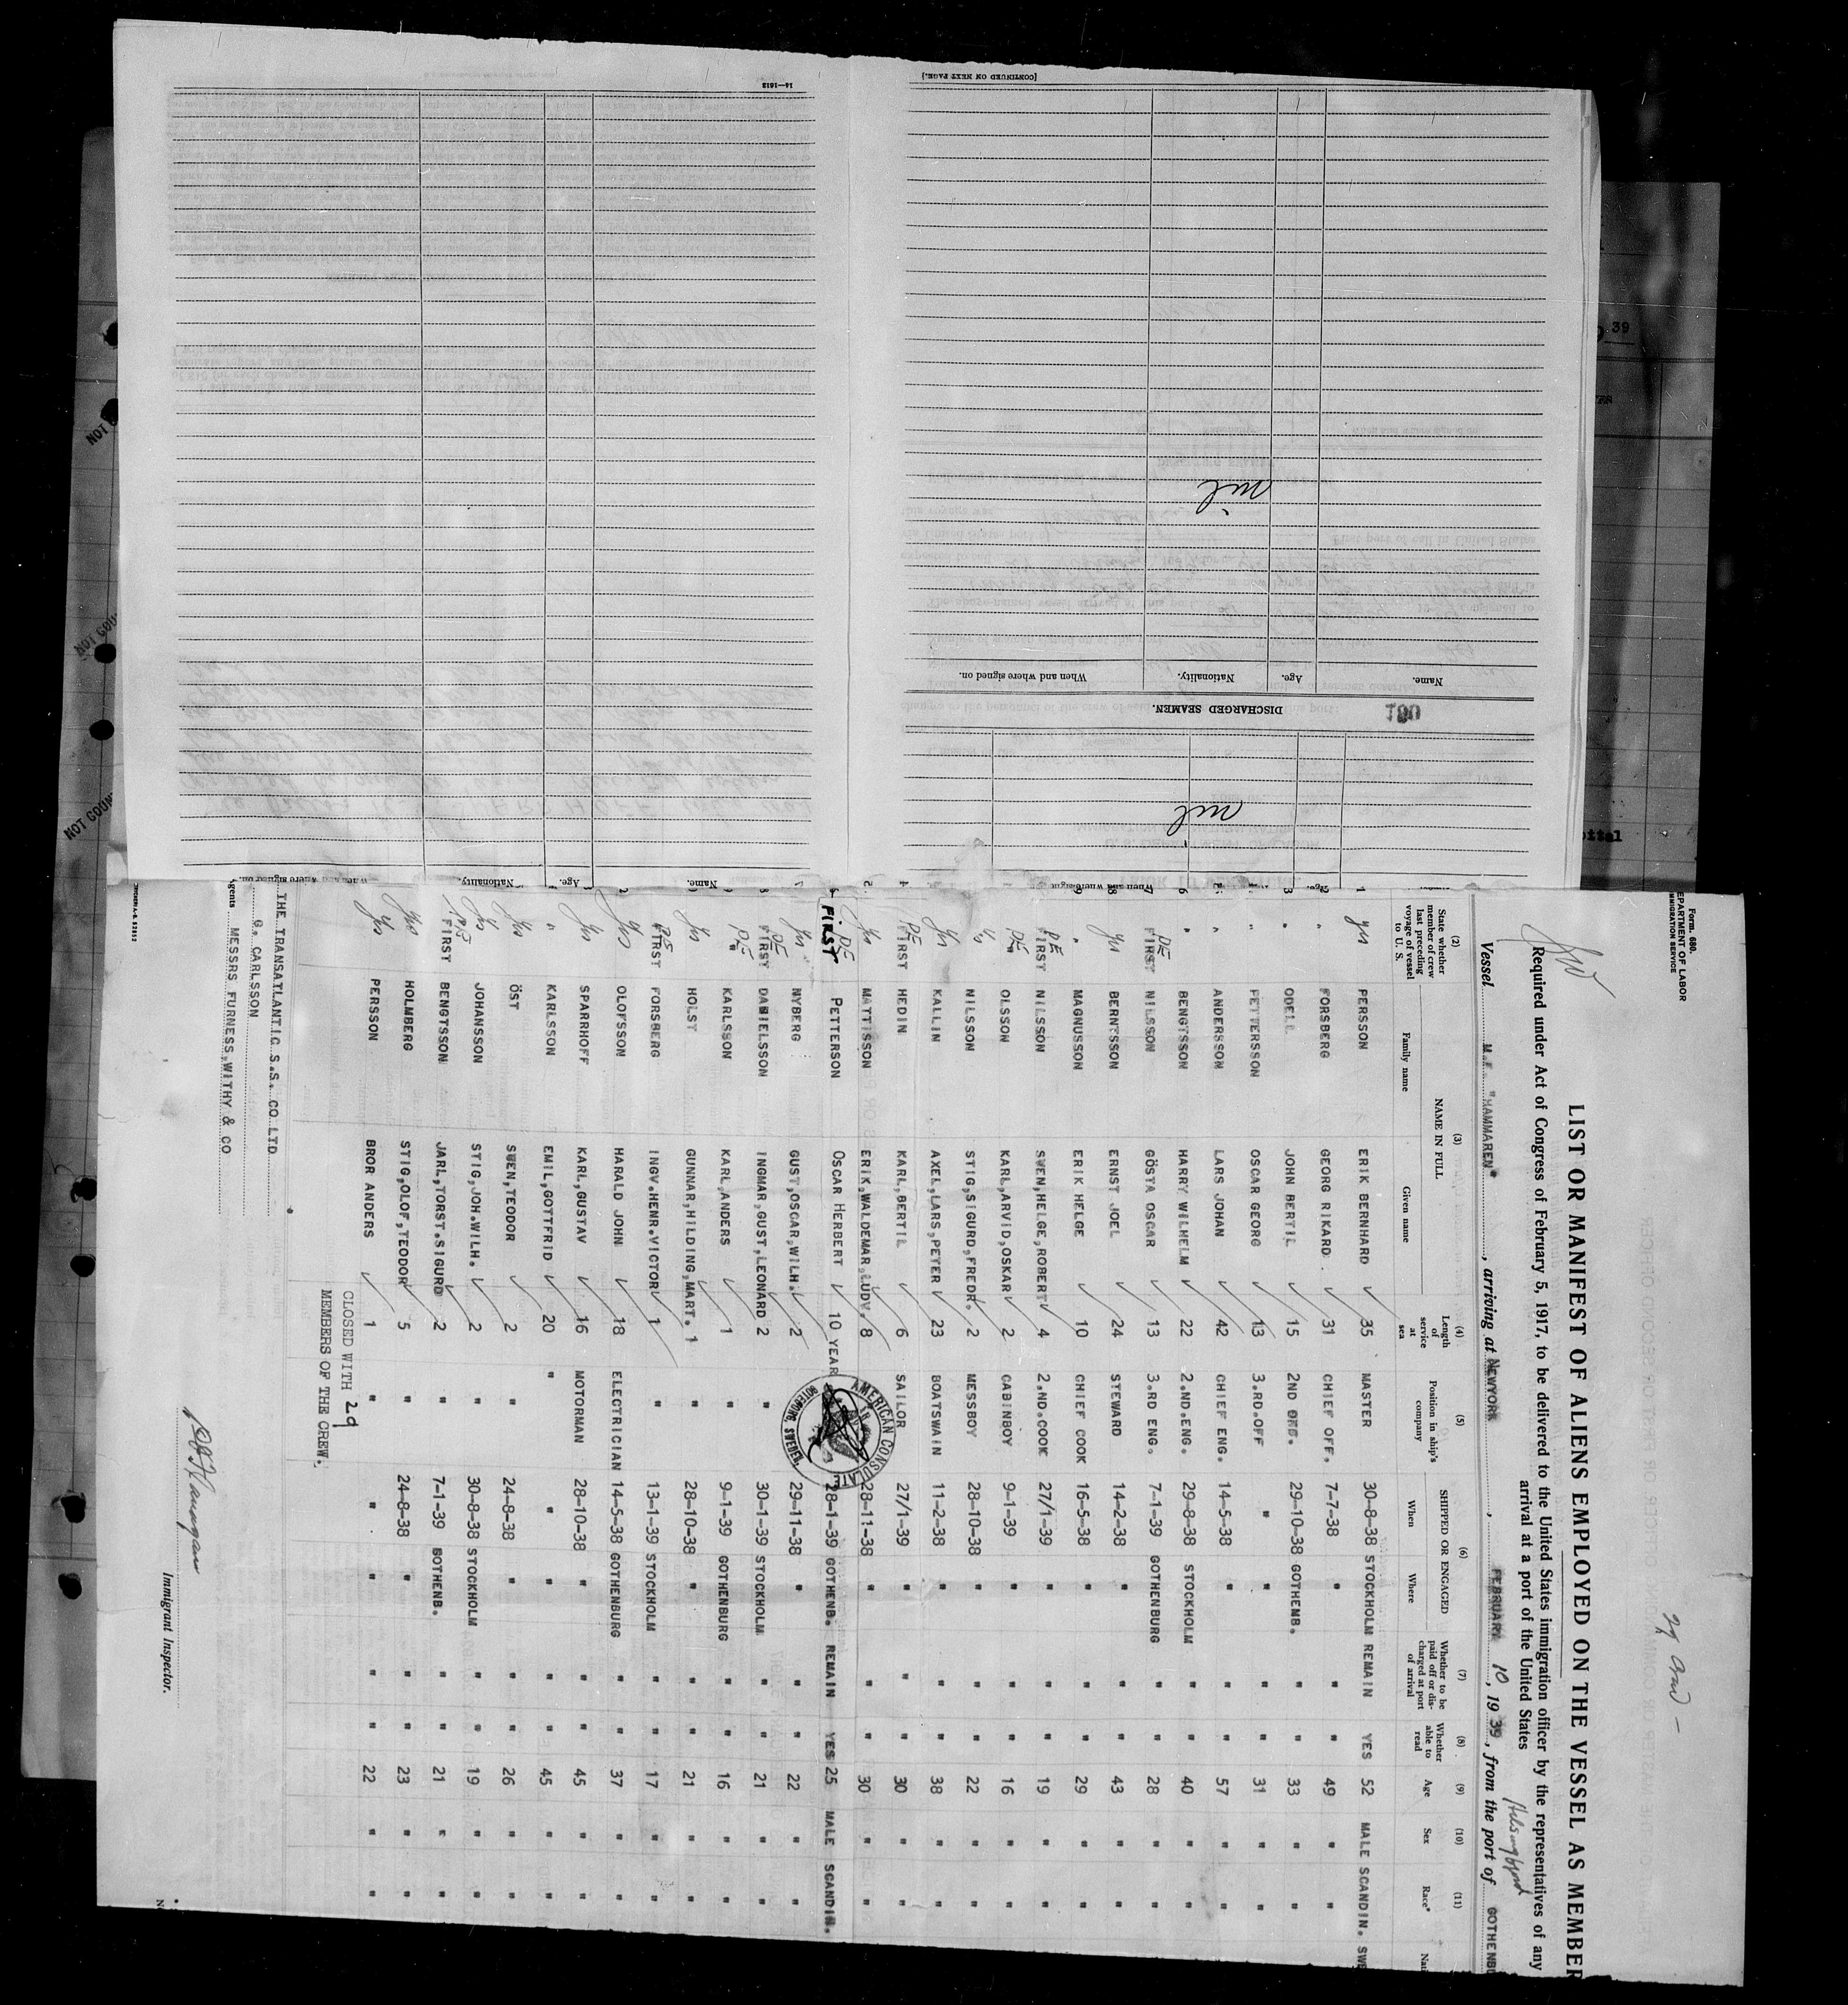 Form 680.
DEPARTMENT OF LABOR
IMMIGRATION SERVICE
LIST OR MANIFEST OF ALIENS EMPLOYED ON THE VESSEL AS MEMBER
Required under Act of Congress of February 5, 1917, to be delivered to the United States immigration officer by the representatives of any
arrival at a port of the United States
Helsingfors
Vessel "HAMMAREN", arriving at NEWYORK, FEBRUARY 10, 1939, from the port of GOTHENBU
(2) (3) (4) (5) (6) (7) (8) (9) (10) (11)
State whether member of crew last preceding voyage of vessel to U. S. NAME IN FULL Family name Given name Length of service at sea Position in ship's company SHIPPED OR ENGAGED When Where Whether to be paid off or discharged at port of arrival Whether able to read Age Sex Race* Nat
1 yes PERSSON ERIK BERNHARD 35 MASTER 30-8-38 STOCKHOLM REMAIN YES 52 MALE SCANDIN. SWE
2 " FORSBERG GEORG RIKARD 31 CHIEF OFF. 7-7-38 " " " 49 " "
3 " ODELL JOHN BERTIL 15 2ND OFF. 29-10-38 GOTHENB. " " 33 " "
" PETTERSSON OSCAR GEORG 13 3.RD.OFF " " " " 31 " "
5 " ANDERSSON LARS JOHAN 42 CHIEF ENG. 14-5-38 " " " 57 " "
6 " BENGTSSON HARRY WILHELM 22 2.ND.ENG. 29-8-38 STOCKHOLM " " 40 " "
7 FIRST NILSSON GÖSTA OSCAR 13 3.RD ENG. 7-1-39 GOTHENBURG " " 28 " "
8 yes BERNTSSON ERNST JOEL 24 STEWARD 14-2-38 " " " 43 " "
9 " MAGNUSSON ERIK HELGE 10 CHIEF COOK 16-5-38 " " " 29 " "
FIRST NILSSON SVEN,HELGE,ROBERT 4 2.ND.COOK 27/1-39 " " " 19 " "
1 " OLSSON KARL,ARVID,OSKAR 2 CABINBOY 9-1-39 " " " 16 " "
yes NILSSON STIG,SIGURD,FREDR. 2 MESSBOY 28-10-38 " " " 22 " "
yes KALLIN AXEL,LARS,PETER 23 BOATSWAIN 11-2-38 " " " 38 " "
4 FIRST HEDIN KARL,BERTIL 6 SAILOR 27/1-39 " " " 30 " "
5 yes MATTISSON ERIK,WALDEMAR,LUDV. 8 28-11-38 " " " 30 " "
FIRST PETTERSON OSCAR HERBERT 10 YEAR 28-1-39 GOTHENB. REMAIN YES 25 MALE SCANDIN.
yes NYBERG GUST,OSCAR,WILH. 2 29-11-38 " " " 22 " "
8 FIRST DANIELSSON INGMAR,GUST,LEONARD 2 " 30-1-39 STOCKHOLM " " 21 " "
" KARLSSON KARL,ANDERS 1 " 9-1-39 GOTHENBURG " " 16 " "
yes HOLST GUNNAR,HILDING,MART. 1 " 28-10-38 " " " 21 " "
FIRST FORSBERG INGV.HENR.VICTOR 1 " 13-1-39 STOCKHOLM " " 17 " "
2 yes OLOFSSON HARALD JOHN 18 ELECTRICIAN 14-5-38 GOTHENBURG " " 37 " "
yes SPARRHOFF KARL,GUSTAV 16 MOTORMAN 28-10-38 " " " 45 " "
" KARLSSON EMIL,GOTTFRID 20 " " " " " 45 " "
yes ÖST SVEN,TEODOR 2 " 24-8-38 " " " 26 " "
yes JOHANSSON STIG,JOH.WILH. 2 " 30-8-38 STOCKHOLM " " 19 " "
FIRST BENGTSSON JARL,TORST.SIGURD 2 " 7-1-39 GOTHENB. " " 21 " "
yes HOLMBERG STIG,OLOF,TEODOR 5 " 24-8-38 " " " 23 " "
yes PERSSON BROR ANDERS 1 " " " " " 22 " "
AMERICAN CONSULATE
GOTEBORG, SWEDEN
CLOSED WITH 29
MEMBERS OF THE CREW.
THE TRANSATLANTIC S.S. CO LTD
G. CARLSSON
Agents MESSRS FURNESS,WITHY & CO
Immigrant Inspector.
When and where signed on. Nationality. Age. Name.
nil
190
DISCHARGED SEAMEN.
Name. Age. Nationality. When and where signed on.
nil
[CONTINUED ON NEXT PAGE.]
14—1612
39
NOT COUN
NOT COUN